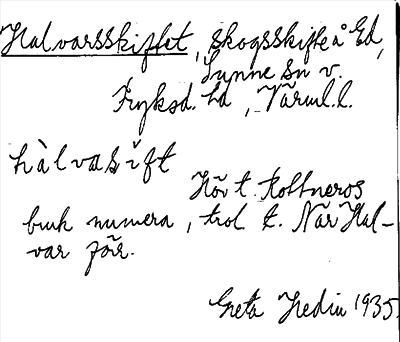 Halvarsskiftet, skogsskifte å Ed,
Sunne sn v.
Fryksd. hd, Värml. l.
hàlvasʃift
Höv t. Rottneros
bruk numera, trol t. När Hal-
var förr.
Greta Hedin 1935.